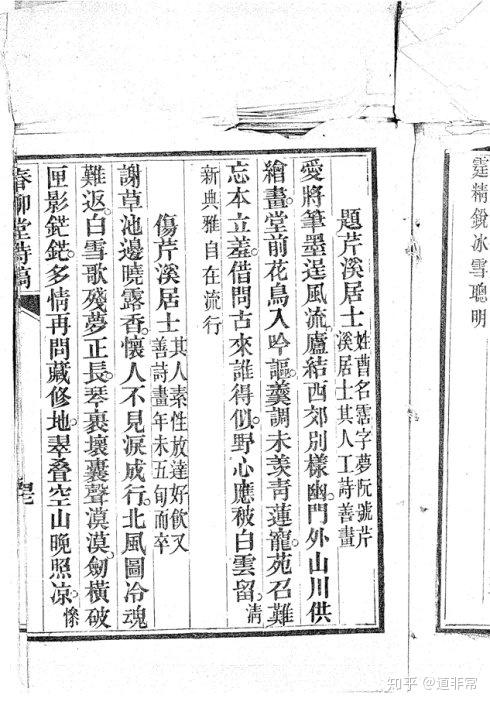 霆精銳冰雪聰明
題芹溪居士
姓曹名霑字夢阮號芹
溪居士其人工詩善畫
愛將筆墨逞風流。廬結西郊別樣幽。門外山川供
繪畫。堂前花鳥入吟謳。羹調未羨青蓮寵。苑召難
忘本立羞。借問古來誰得似。野心應被白雲留。清
新典雅自在流行
傷芹溪居士
其人素性放達好飲又
善詩畫年未五旬而卒
謝草池邊曉露香。懷人不見淚成行。北風圖冷魂
難返。白雪歌殘夢正長。琴裹壞囊聲漠漠。劍橫破
匣影鋩鋩。多情再問藏修地。翠疊空山晚照凉。慘
春柳堂詩稿
知乎 @道非常